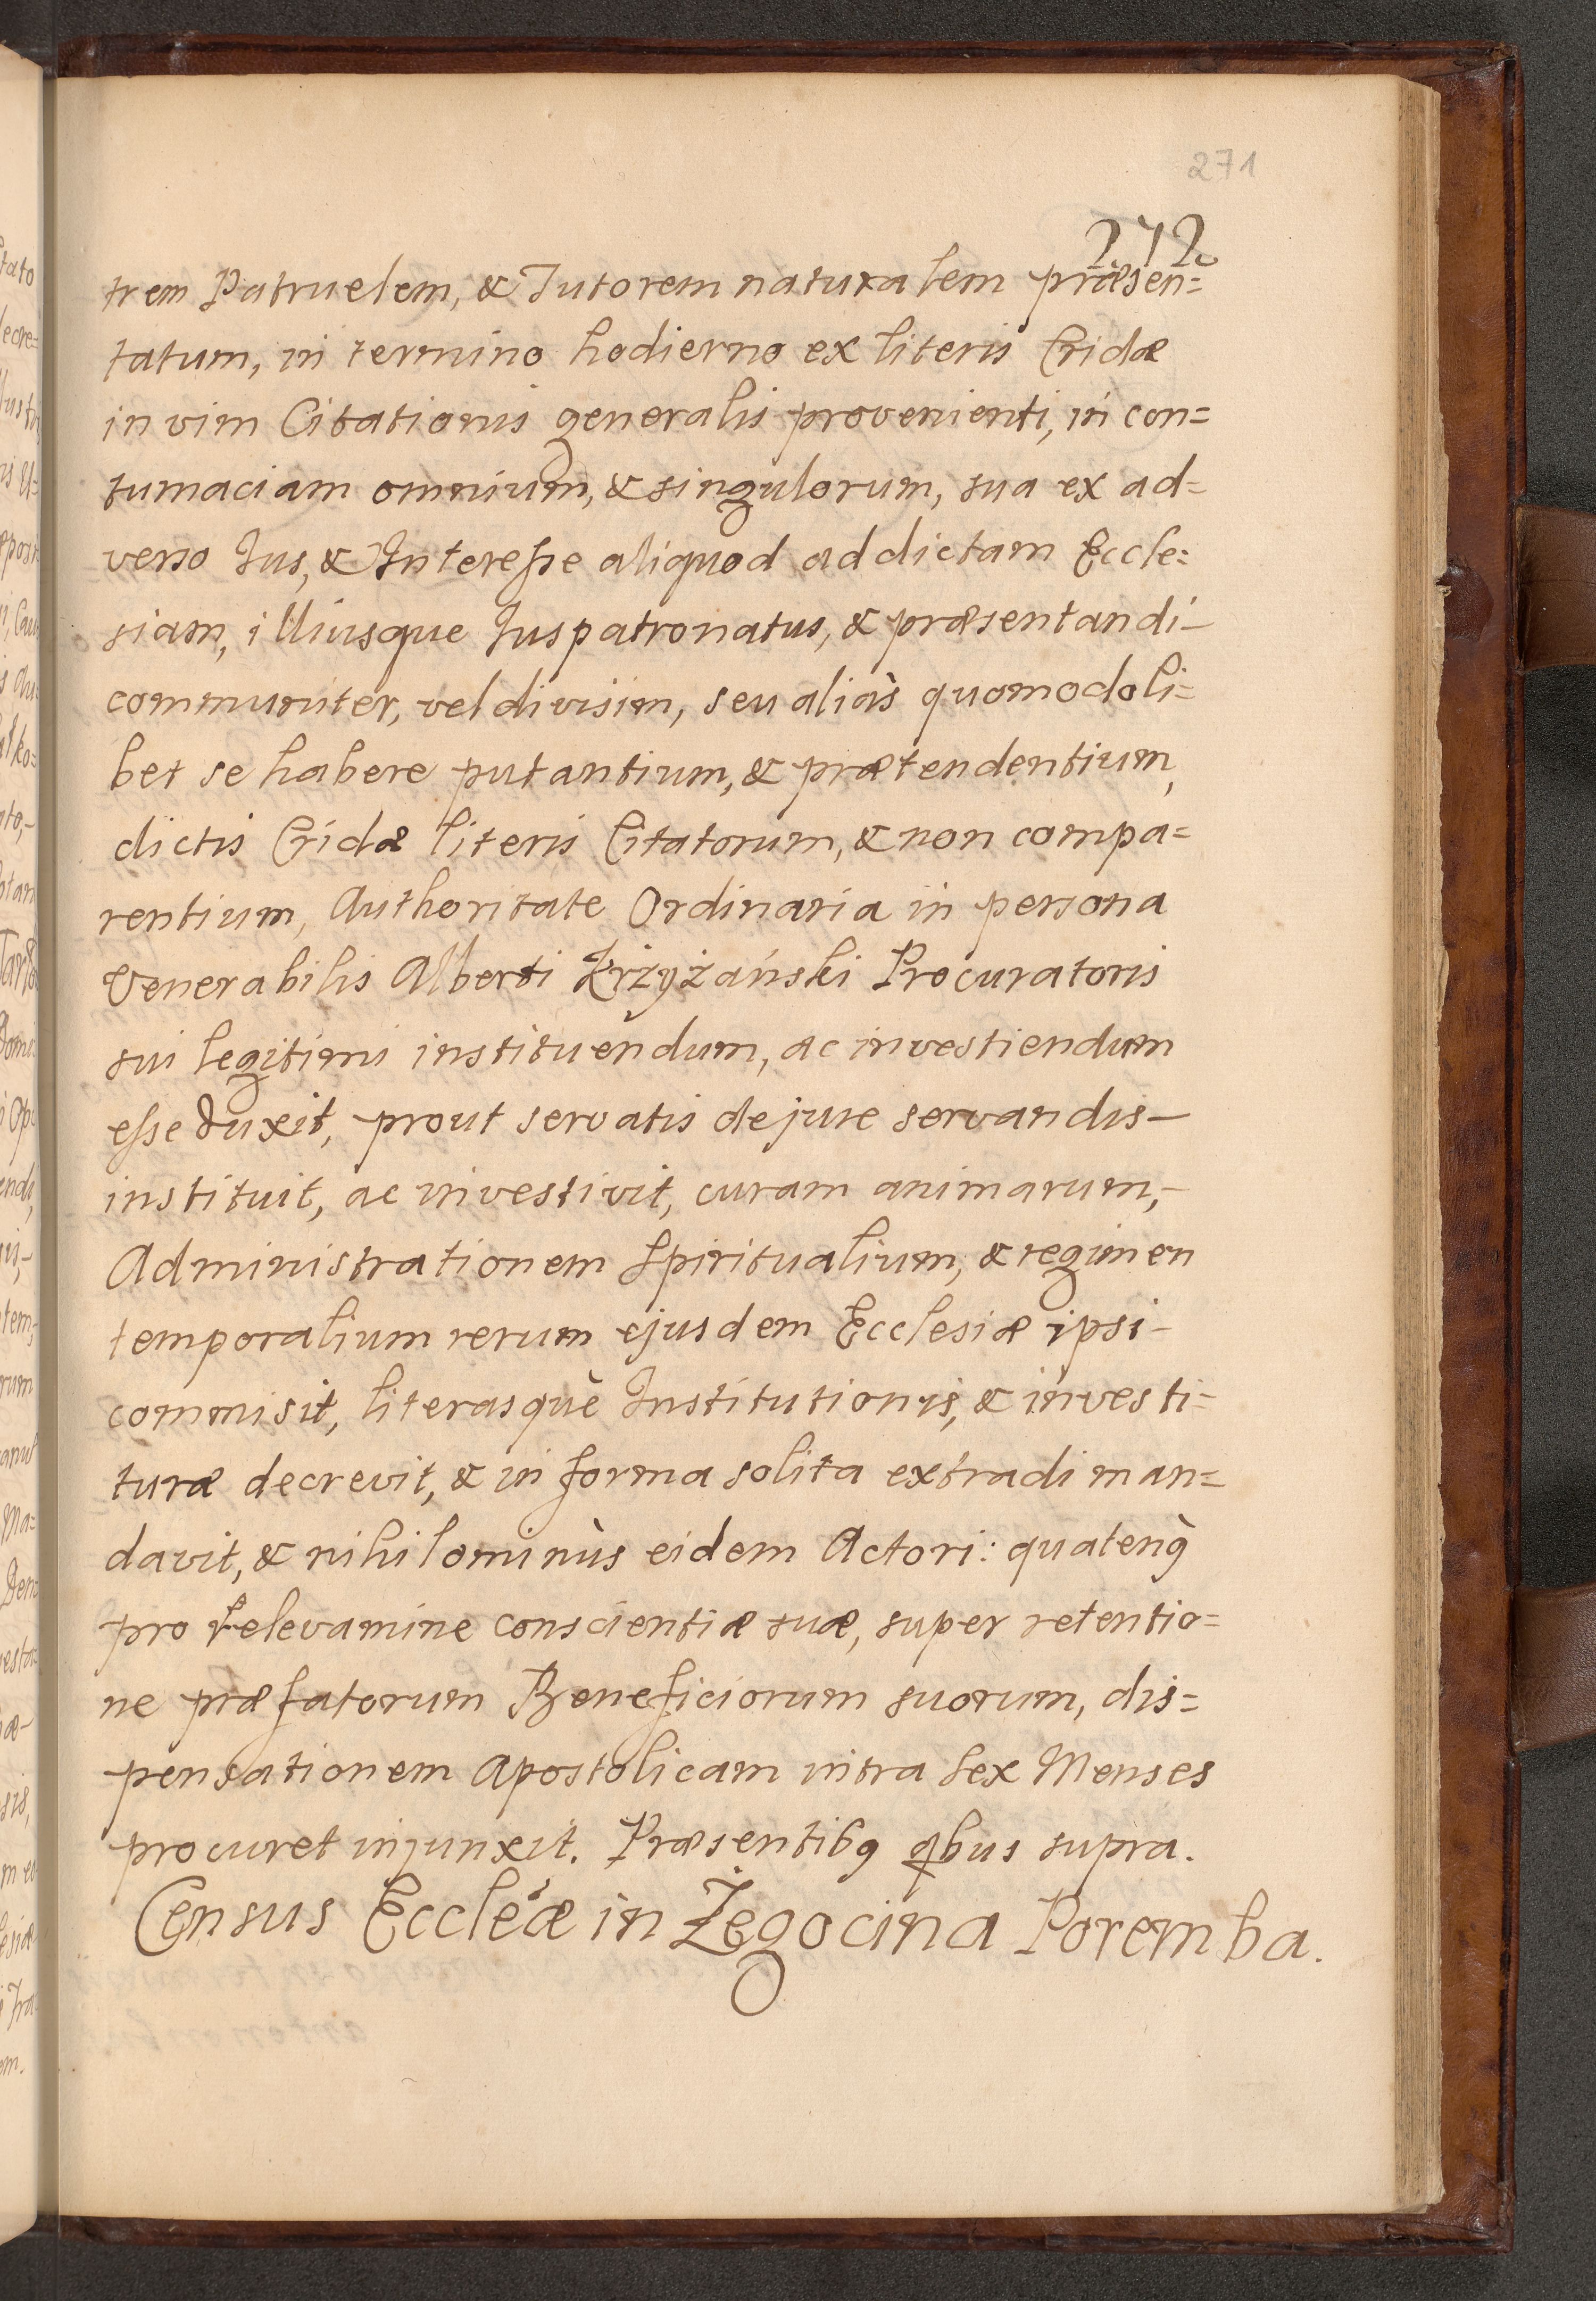 271
272
trem Patruelem, & Tutorem naturalem præsen=
tatum, in termino hodierno ex literis Cridæ
in vim Citationis generalis provenienti, in con=
tumaciam omnium, & singulorum, sua ex ad=
verso Jus, & Interesse aliquod ad dictam Eccle=
siam, illiusque Juspatronatus, & præsentandi—
communiter, vel divisim, seu aliàs quomodoli=
bet se habere putantium, & prætendentium,
dictis Cridæ literis Citatorum, & non compa=
rentium, Authoritate Ordinaria in persona
Venerabilis Alberti Krzyżański Procuratoris
sui legitimi instituendum, ac investiendum
esse duxit, prout servatis de jure servandis—
instituit, ac investivit, curam animarum,—
Administrationem Spiritualium, & regimen
temporalium rerum ejusdem Ecclesiæ ipsi—
commisit, literasquè Institutionis, & investi=
turæ decrevit, & in forma solita extradi man=
davit, & nihilominùs eidem Actori: quatenꝯ
pro relevamine conscientiæ suæ, super retentio=
ne præfatorum Beneficiorum suorum, dis=
pensationem Apostolicam intra Sex Menses
procuret injunxit. Præsentibꝯ qbus supra.
Census Eccleæ in Żegocina Poremba.